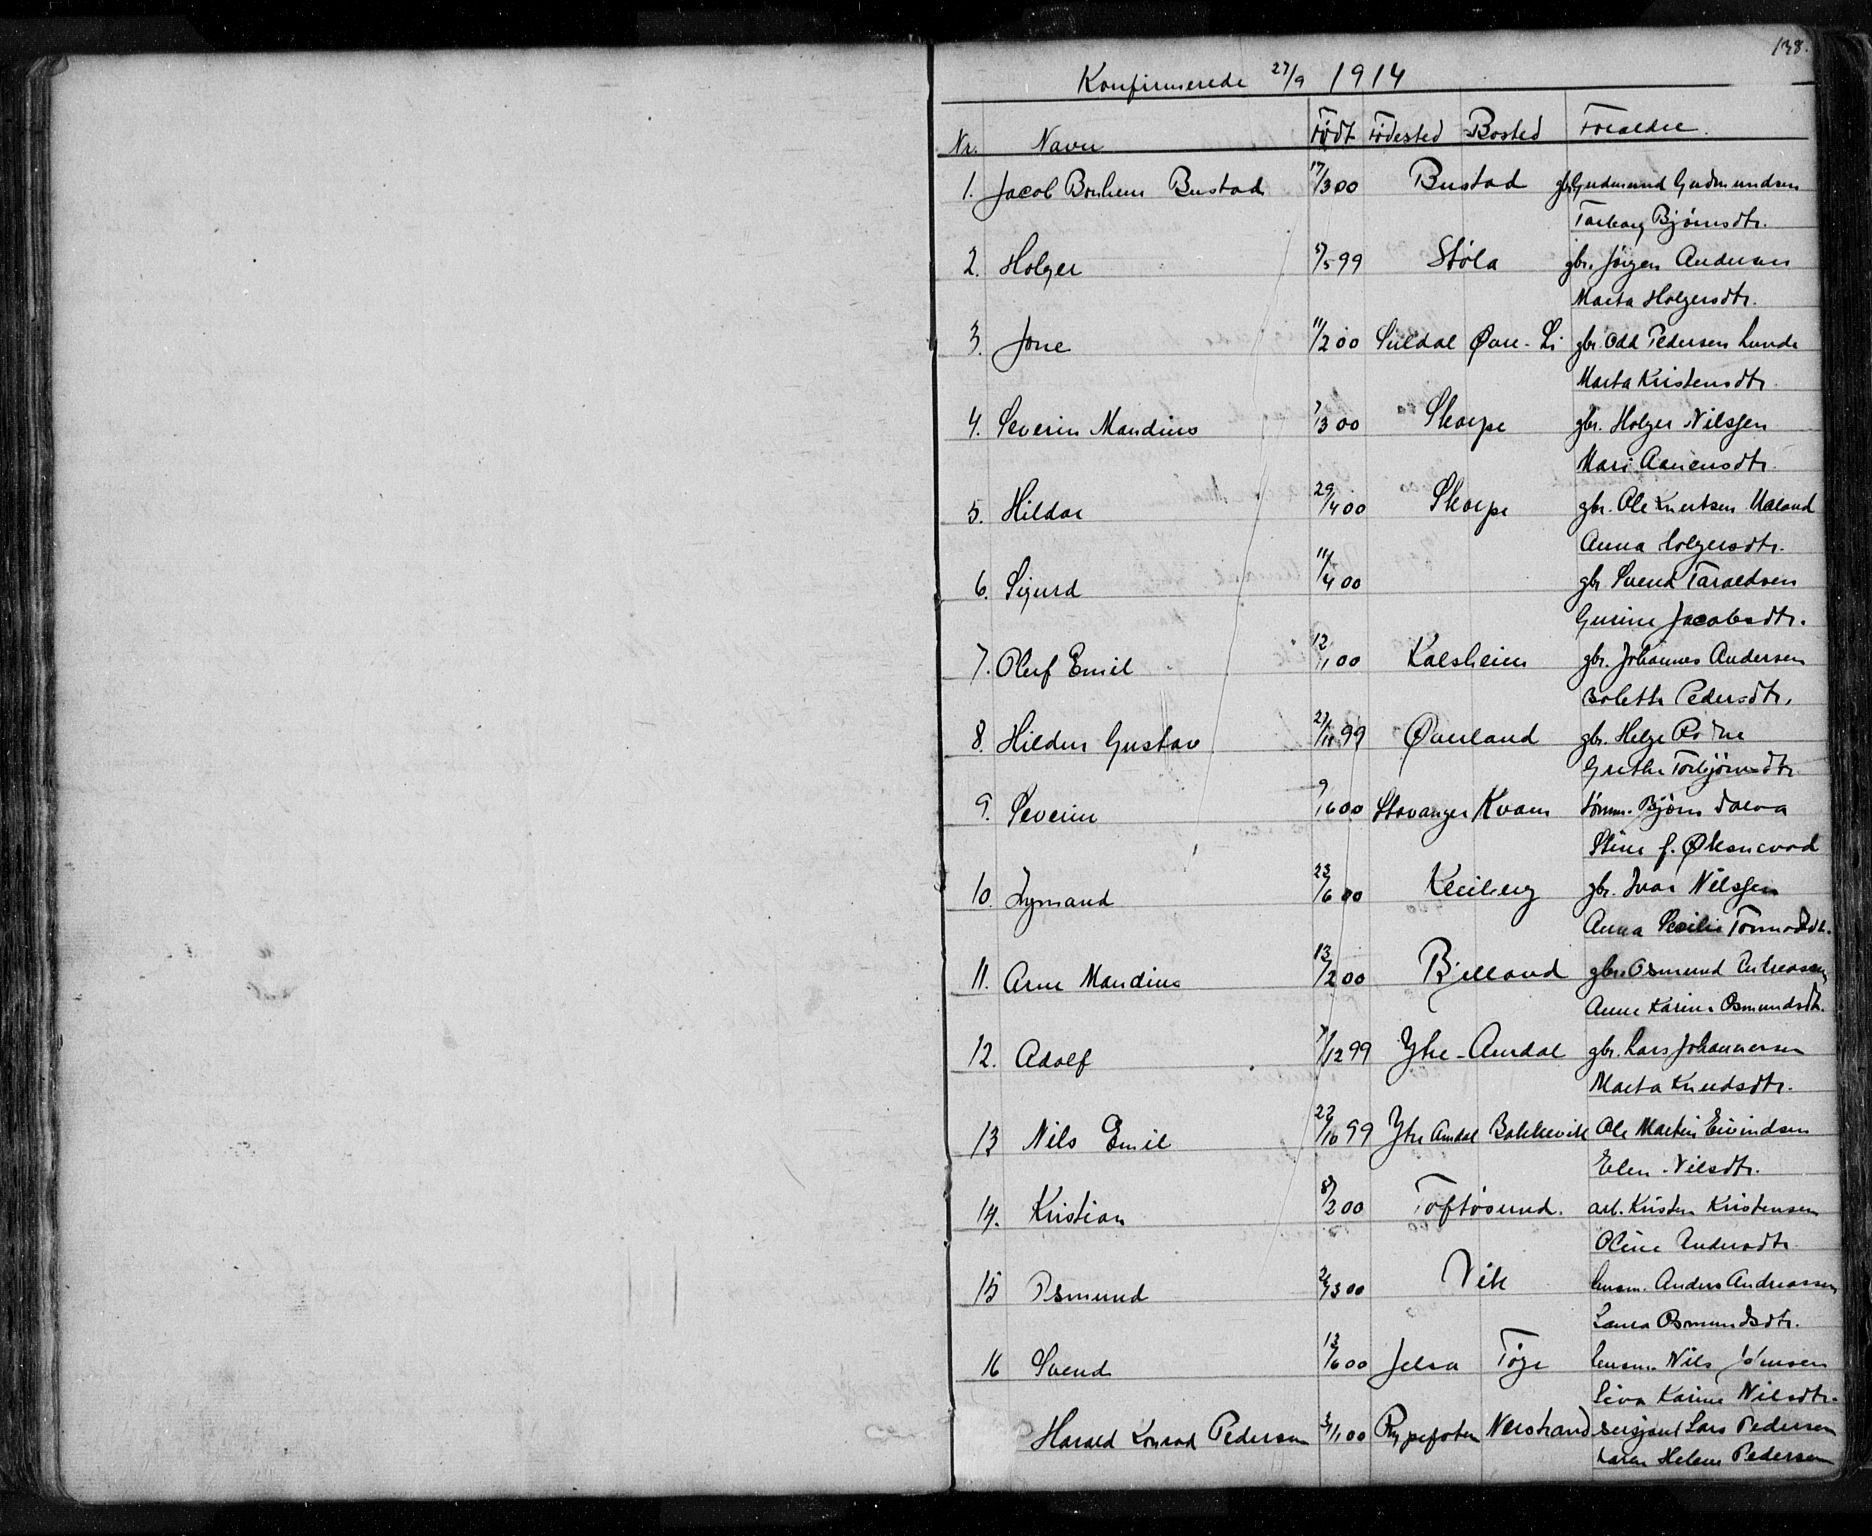 138.
Konfirmerede 27/9 1914
Nr. Navn Født Fødested Bosted Foreldre.
1. Jacob Bustad 17/3 00 Bustad gbr. Gudmund Gudmundsen
Torborg Bjørnsdtr.
2. Holger 5/5 99 Støla gbr. Jørgen Andersen
Marta Holgersdtr.
3. Jone 11/2 00 Suldal Øvre-Li gbr. Odd Pedersen Lunde
Marta Kristensdtr.
4. Severin Mandius 7/3 00 Skorpe gbr. Holger Nilssen
Mari Aanensdtr.
5. Hildar 29/4 00 Skorpe gbr. Ole Knutsen
Anna Holgersdtr.
6. Sigurd 11/4 00 gbr Svend Taraldsen
Gurine Jacobsdtr.
7. Oluf Emil 12/1 00 Kalsheim gbr. Johannes Andersen
Bolette Pedersdtr.
8. Gustav 27/11 99 Øverland gbr. Helge
Grethe Torbjørnsdtr.
9. Severin 9/6 00 Stavanger Kvam Bjørn
Stine f. Øksnevad
10. Ingmand 23/6 00 gbr. Ivar Nilssen
Anna Tormodsdtr.
11. Arne Mandius 13/2 00 Bjelland gbr. Osmund Andreassen
Anne Karine Osmundsdtr.
12. Adolf 7/12 99 Ytre-Amdal gbr. Lars Johannesen
Marta Knudsdtr.
13 Nils Emil 22/10 99 Ytre Amdal Bakkevik Ole Martin Eivindsen
Elen Nilsdtr.
14. Kristian 8/2 00 Toftøsund. arb. Kristen Kristensen
Oline Andersdtr.
15 Osmund 2/3 00 Vik Anders Andreassen
Laura Osmundsdtr.
16 Svend 13/6 00 Jelsa Tøge Nils Jonsen
Siva Karine Nilsdtr.
Harald Konrad Pedersen 3/1 00 Nerstrand sersjant Lars Pedersen
Karen Helene Pedersen